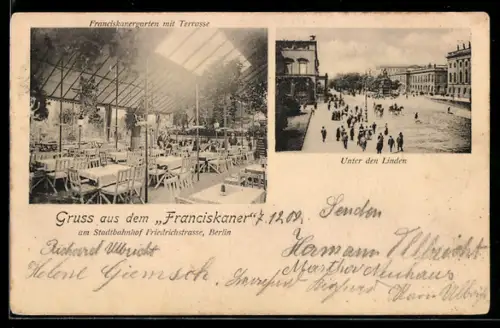 Franciskanergarten mit Terrasse
Unter den Linden
Gruss aus dem „Franciskaner"
am Stadtbahnhof Friedrichstrasse, Berlin
7.12.09. Senden
Richard Ulbricht
Hermann Ulbricht
Martha Neuhaus
Helene Giemsch